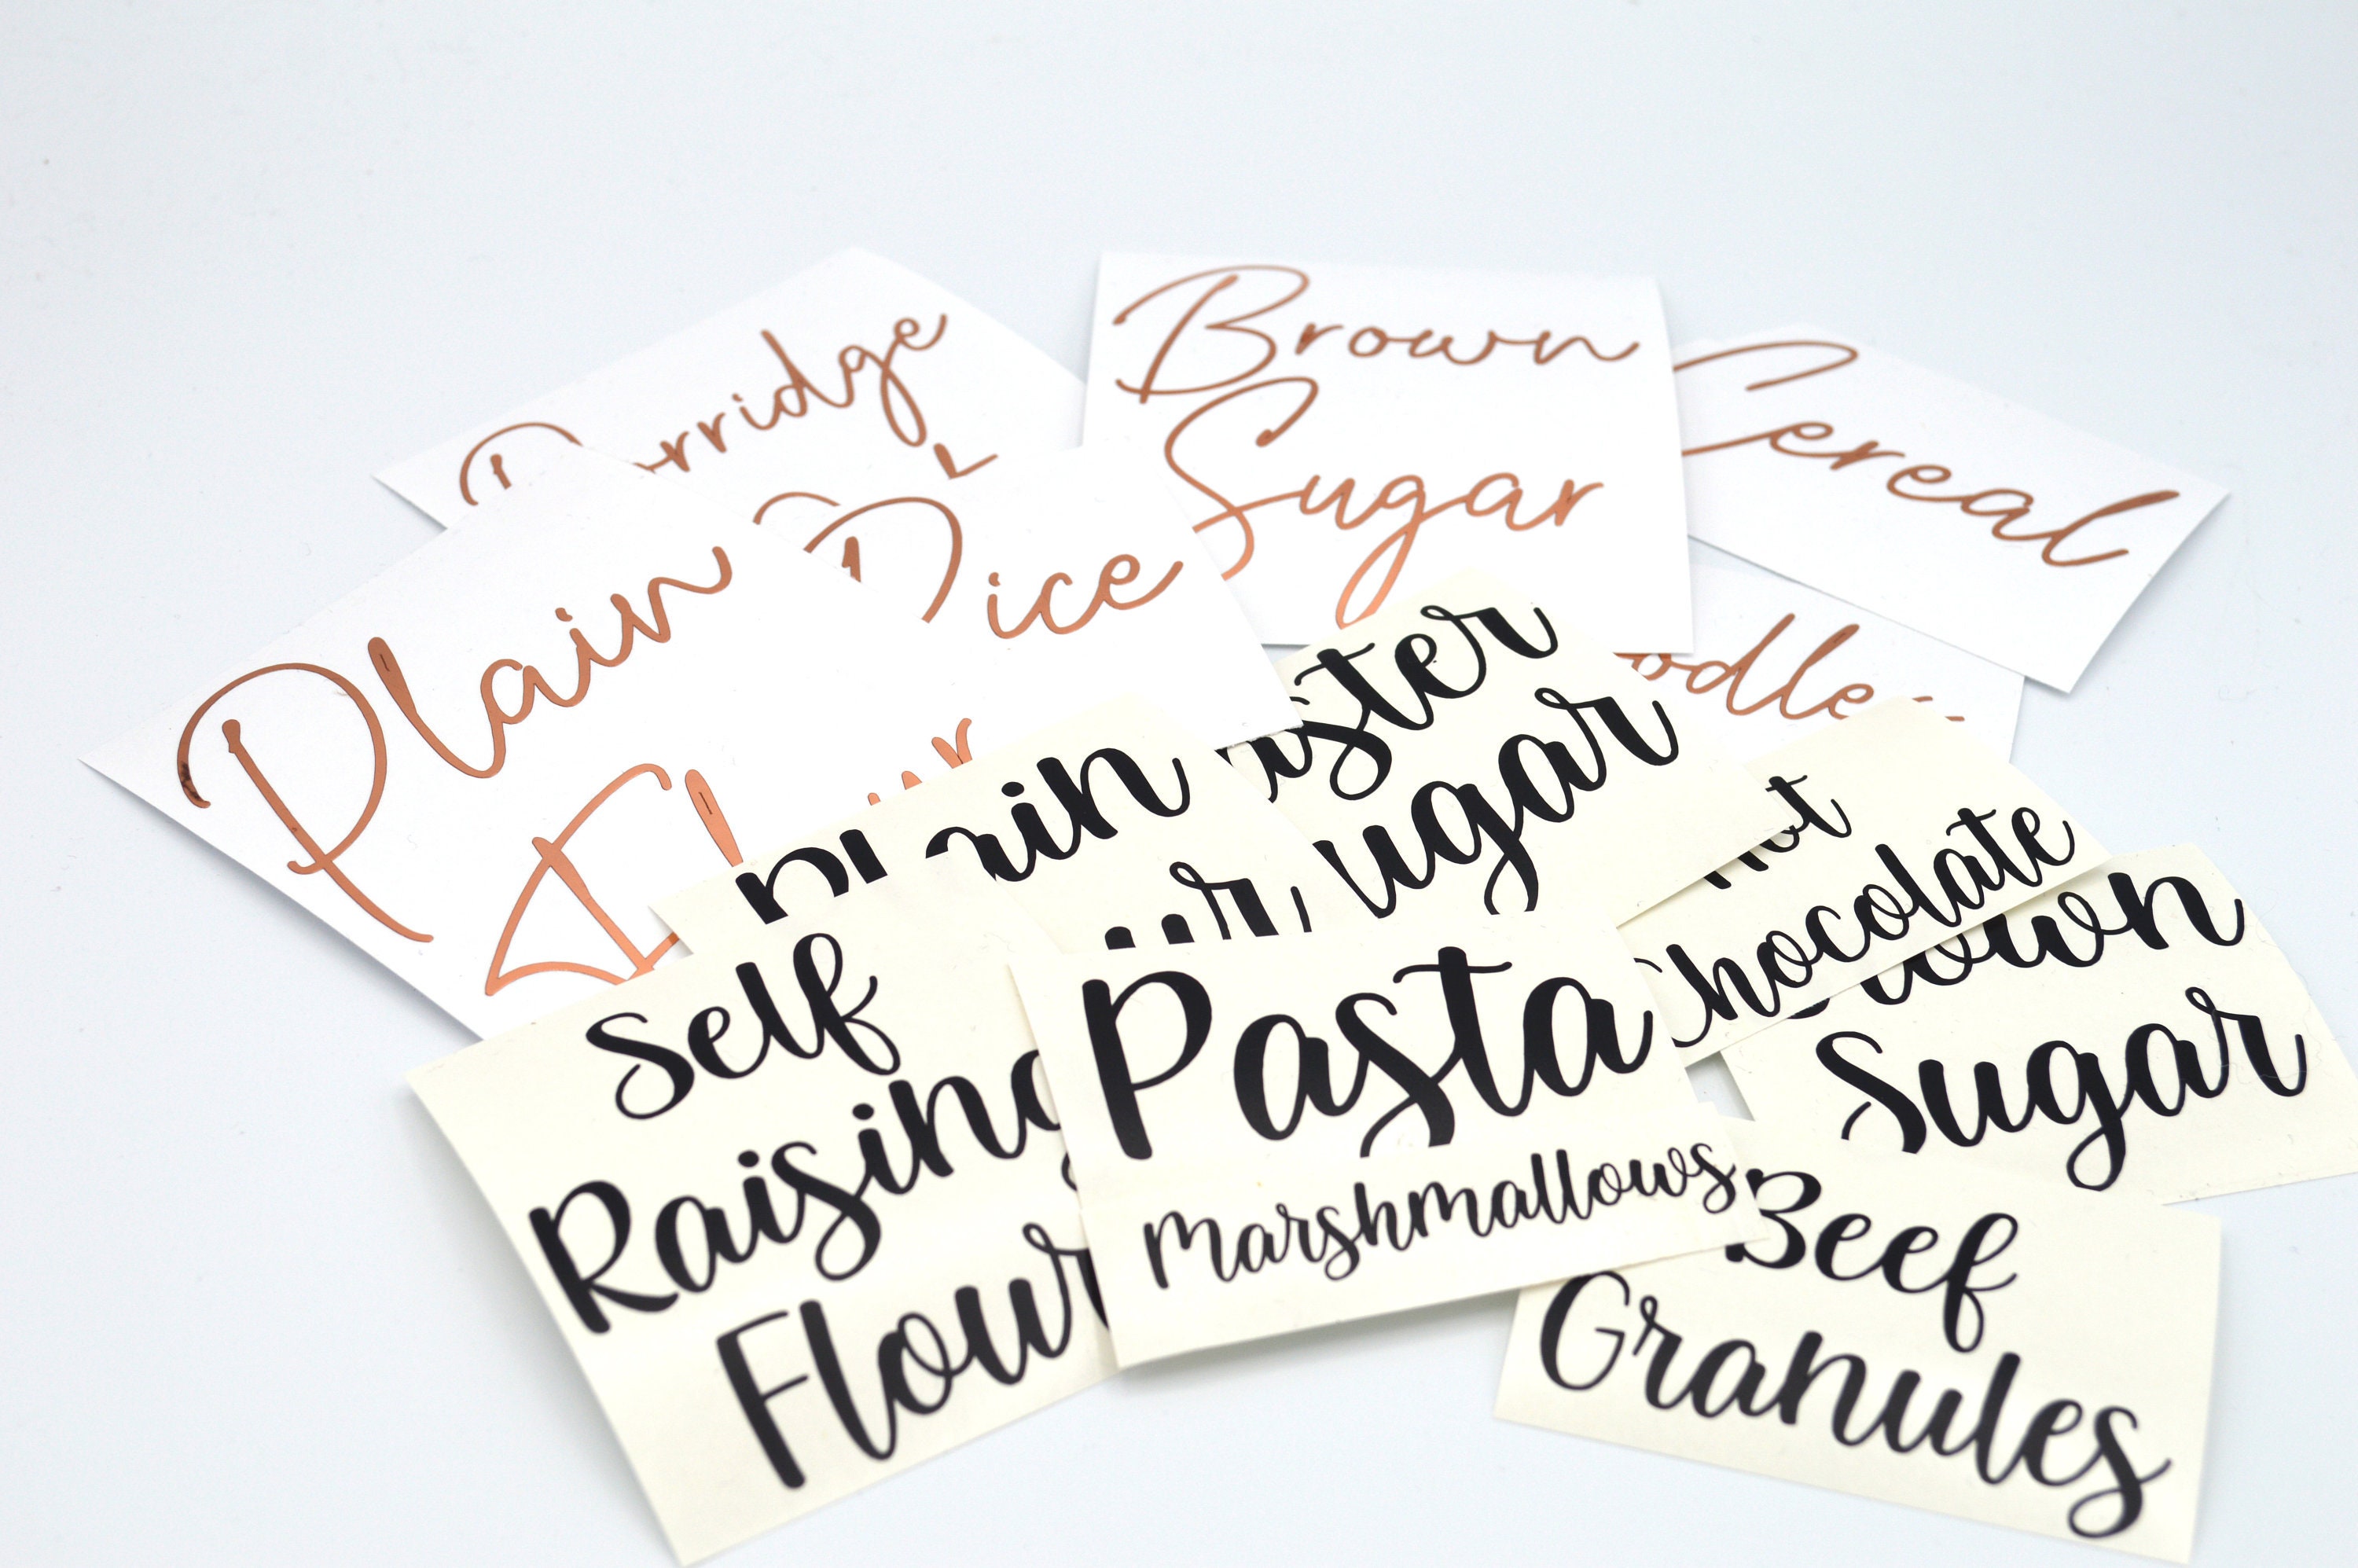 Porridge
Brown
Sugar
Cereal
Plain
Rice
Flour
Noodles
Caster
Sugar
Plain
Hot
Chocolate
Brown
Sugar
Self
Raising
Flour
Pasta
Marshmallows
Beef
Granules